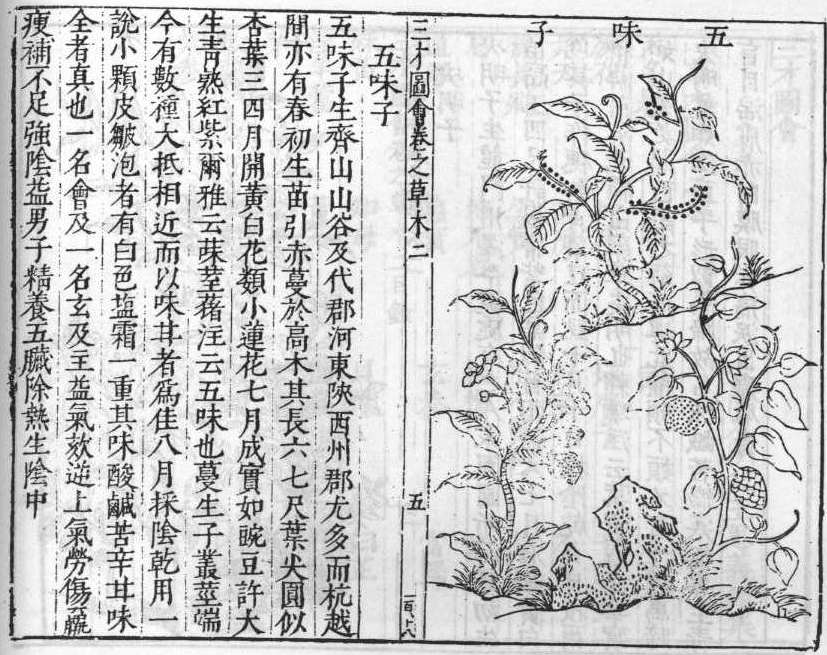 五味子
三才圖會卷之草木二
五
五味子
五味子生齊山山谷及代郡河東陝西州郡尤多而杭越
間亦有春初生苗引赤蔓於高木其長六七尺葉尖圓似
杏葉三四月開黃白花類小蓮花七月成實如豌豆許大
生青熟紅紫爾雅云菋荎蕏注云五味也蔓生子叢莖端
今有數種大抵相近而以味甘者爲佳八月採陰乾用一
說小顆皮皺泡者有白色塩霜一重其味酸鹹苦辛甘味
全者真也一名會及一名玄及主益氣欬逆上氣勞傷羸
瘦補不足強陰益男子精養五臟除熱生陰中